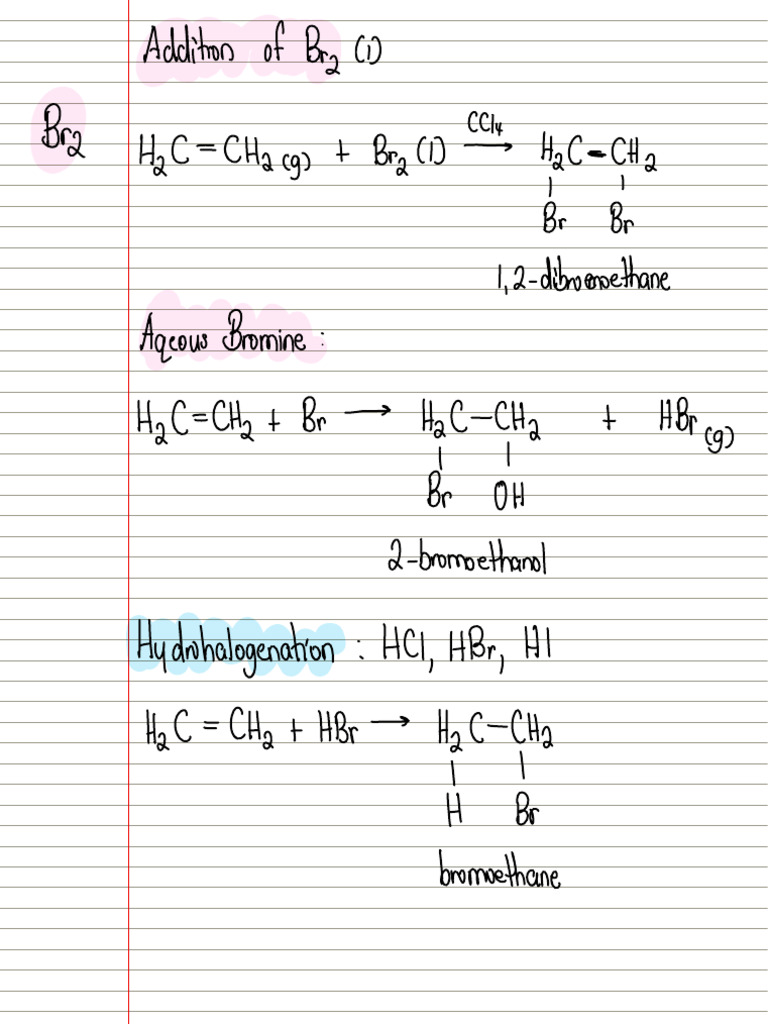 Addition of Br₂ (l)
Br₂
H₂C=CH₂(g) + Br₂(l) —CCl₄→ H₂C-CH₂
Br Br
1,2-dibromoethane
Aqeous Bromine :
H₂C=CH₂ + Br → H₂C-CH₂ + HBr(g)
Br OH
2-bromoethanol
Hydrohalogenation : HCl, HBr, HI
H₂C = CH₂ + HBr → H₂C-CH₂
H Br
bromoethane